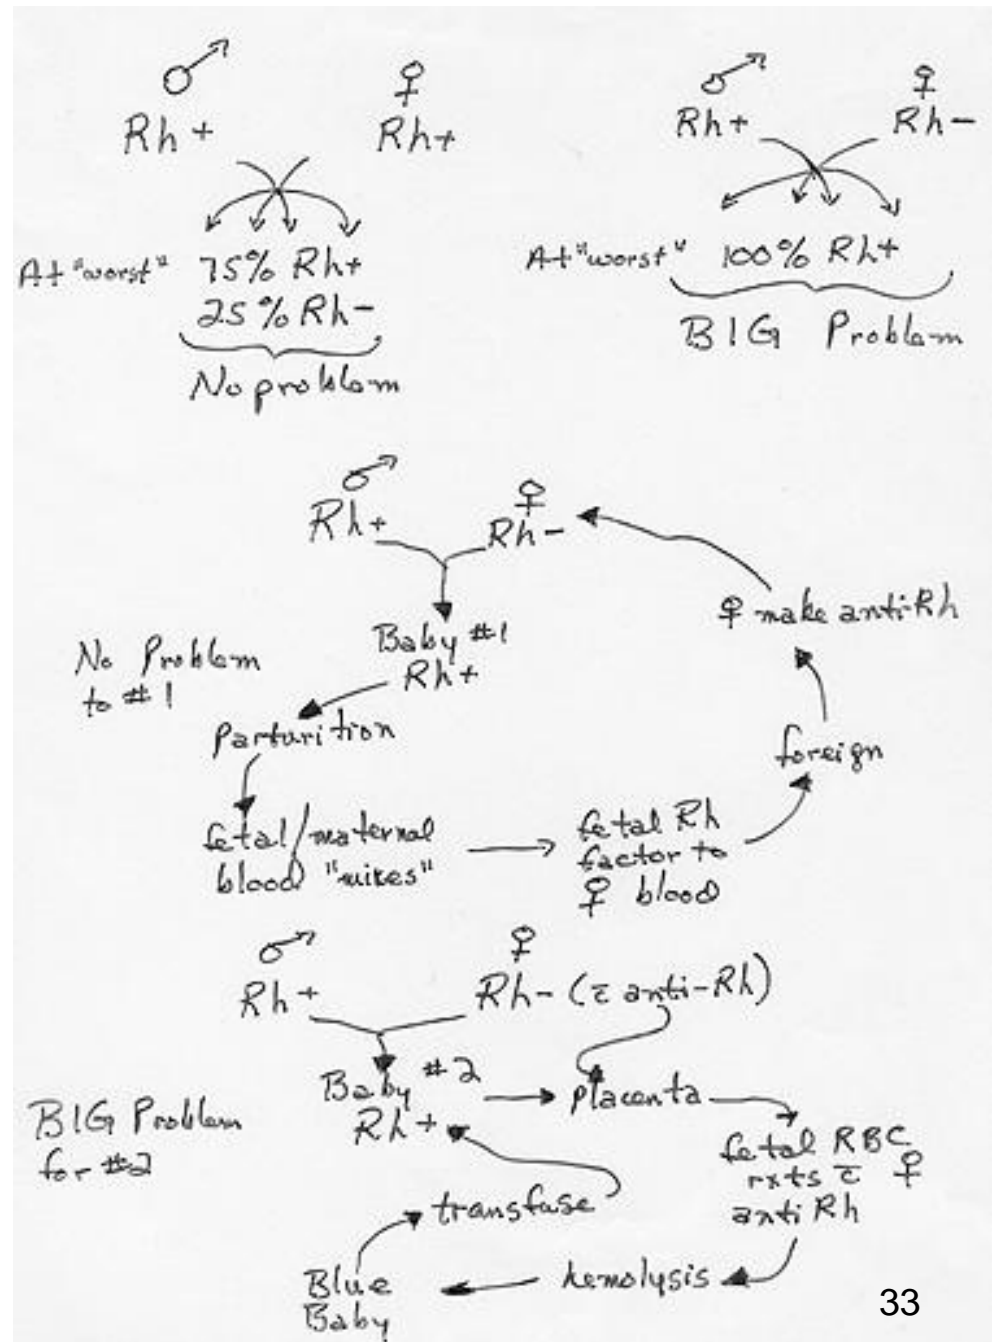 ♂ ♀
Rh+ Rh+
At "worst" 75% Rh+
25% Rh-
No problem
♂ ♀
Rh+ Rh-
At "worst" 100% Rh+
BIG Problem
♂ ♀
Rh+ Rh-
Baby #1
Rh+
No Problem
to #1
Parturition
fetal/maternal
blood "mixes"
fetal Rh
factor to
♀ blood
foreign
♀ make anti-Rh
♂ ♀
Rh+ Rh- (c̄ anti-Rh)
Baby #2
Rh+
BIG Problem
for #2
placenta
fetal RBC
rxts c̄ ♀
anti Rh
hemolysis
Blue
Baby
transfuse
33